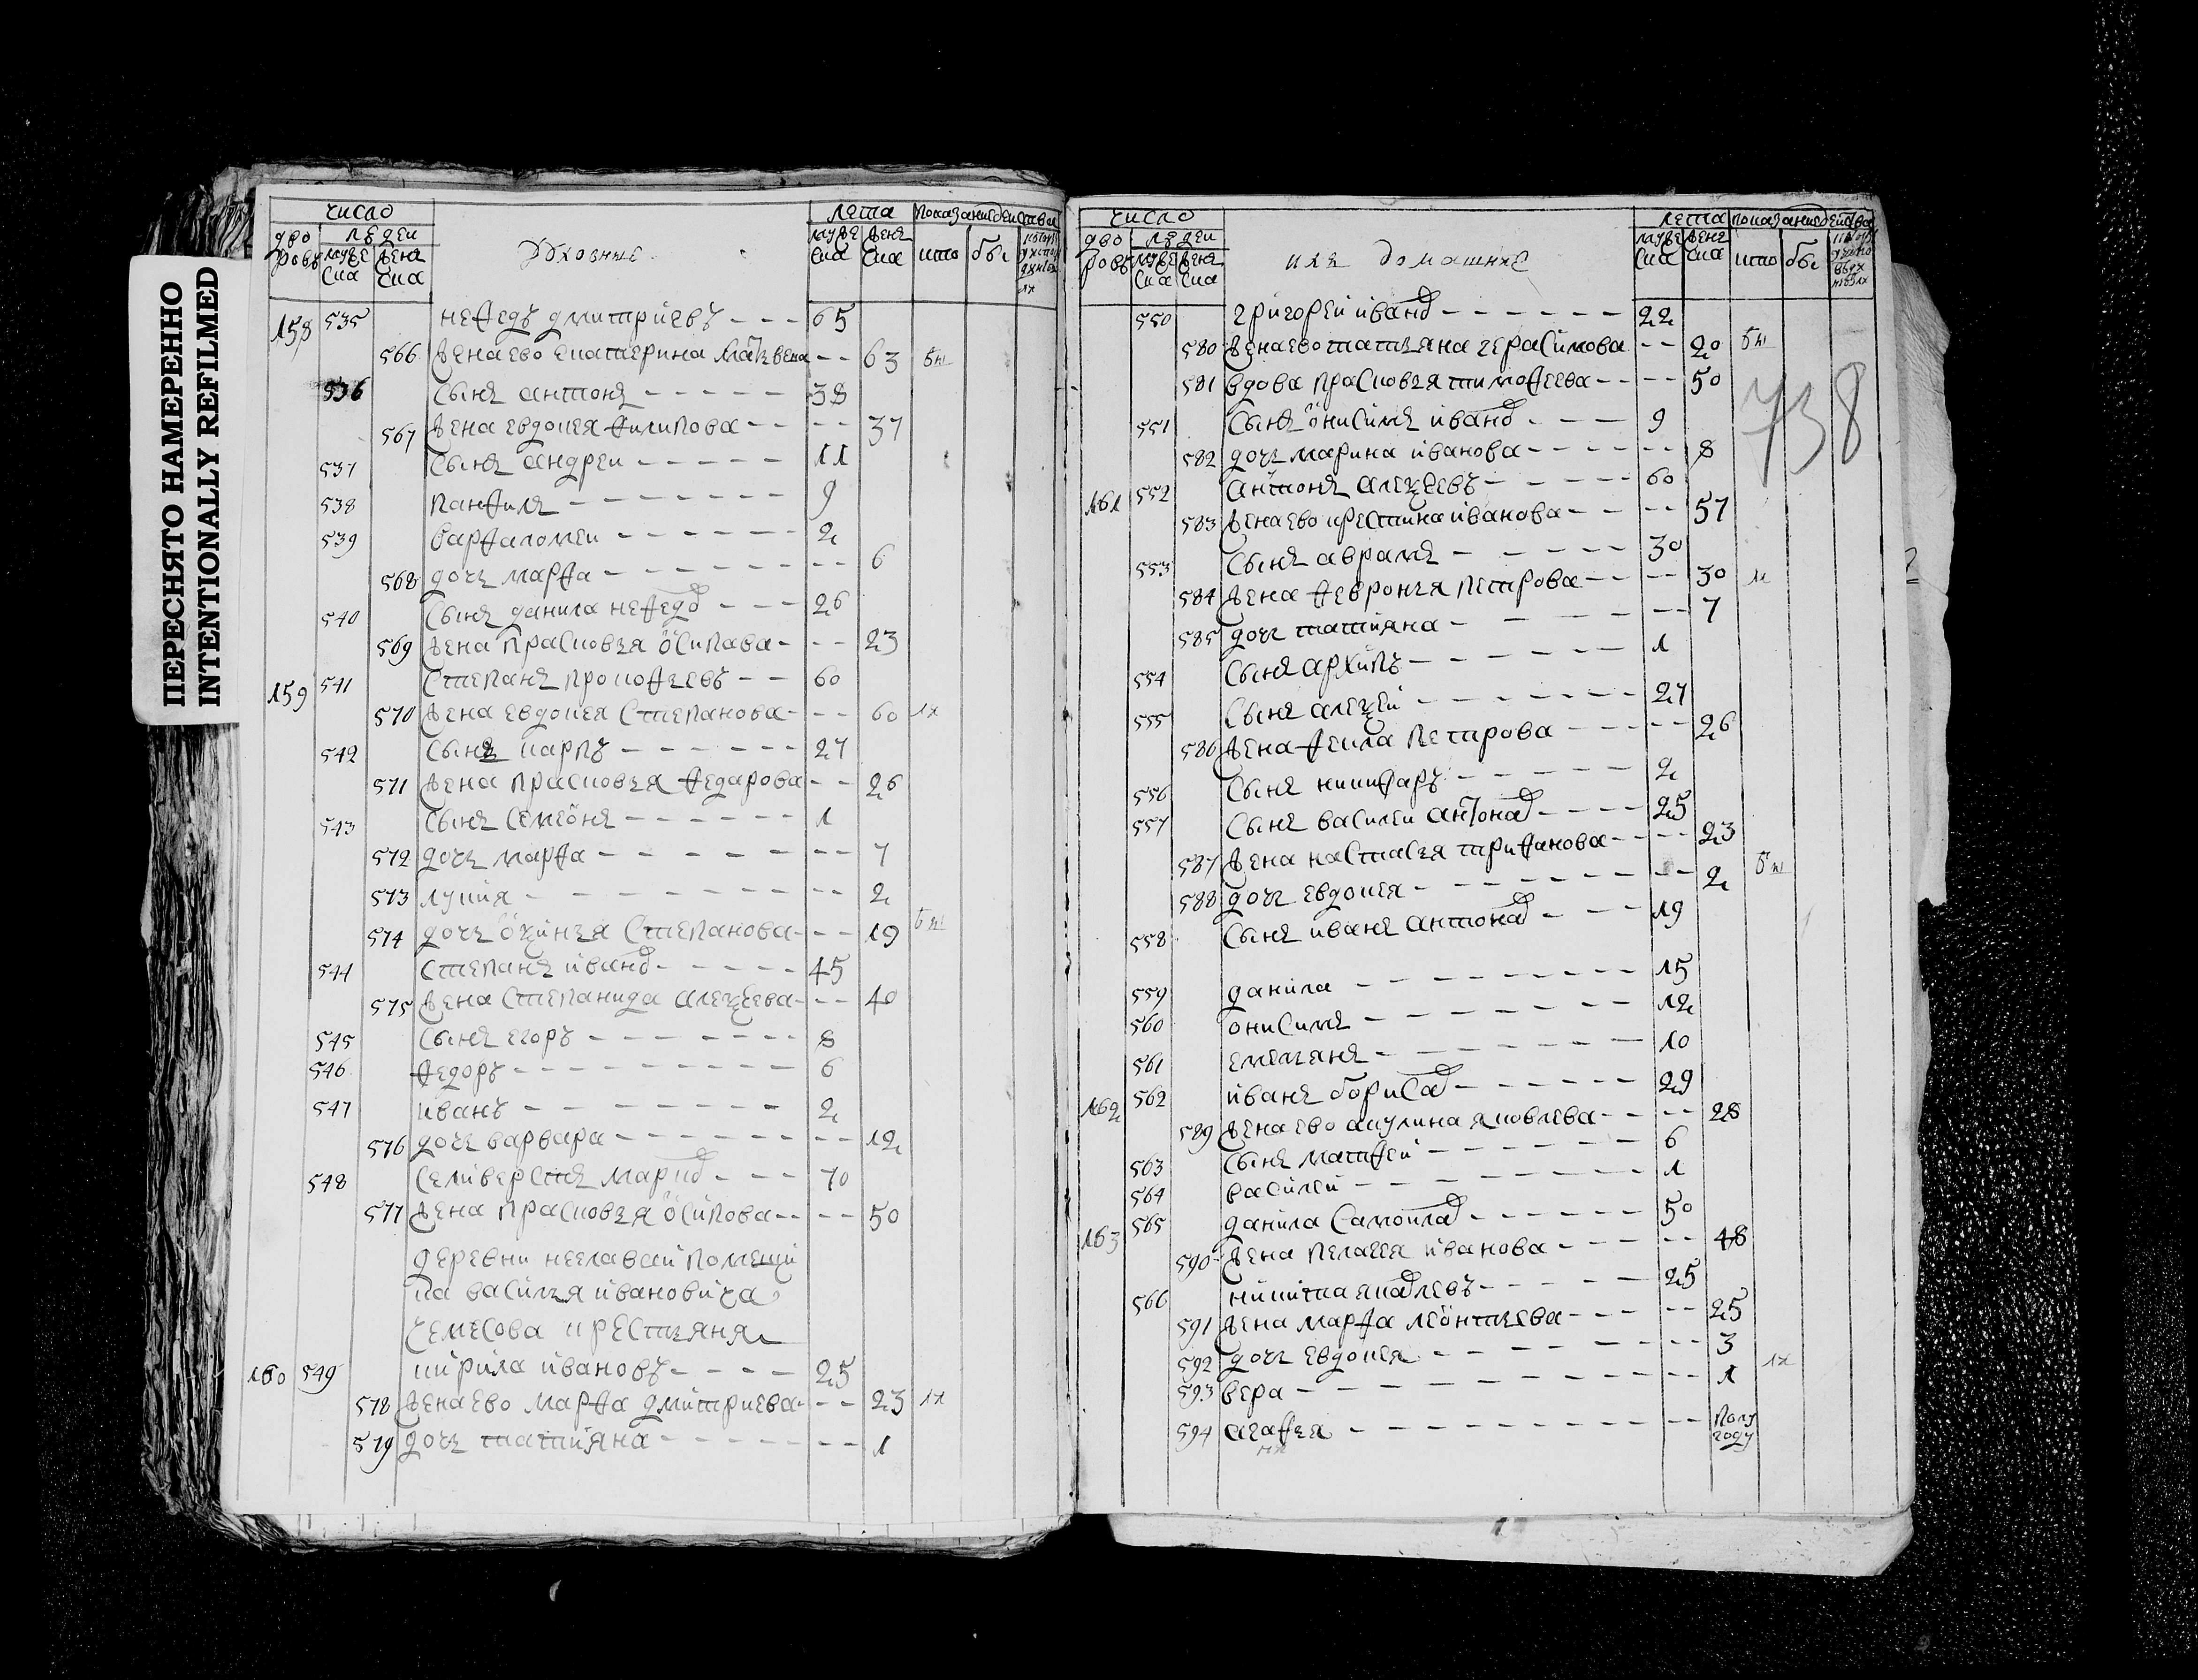 ПЕРЕСНЯТО НАМЕРЕННО
INTENTIONALLY REFILMED
число лета показание действа
дво ровъ людеи мужеска женска духовные мужеска женска кто бы
158 535 нефедъ дмитриевъ 65
566 жена ево екатерина матвѣева 63
536 сынъ антонъ 38
567 жена евдокея филипова 37
537 сынъ андреи 11
538 панфилъ 9
539 варфаломеи 2
568 дочь марфа 6
540 сынъ данила нефедо 26
569 жена прасковья осипава 23
159 541 степанъ прокофьевъ 60
570 жена евдокея степанова 60
542 сынъ карпъ 27
571 жена прасковья федарова 26
543 сынъ семеонъ 1
572 дочь марфа 7
573 лукия 2
574 дочь оксинья степанова 19
544 степанъ ивано 45
575 жена степанида алексеева 40
545 сынъ егоръ 8
546 федоръ 6
547 иванъ 2
576 дочь варвара 12
548 селиверстъ марко 70
577 жена прасковья осипова 50
деревни неелавай помещи
ка василья ивановича
чемесова крестьяня
160 549 кирила ивановъ 25
578 жена ево марфа дмитриева 23
579 дочь татияна 1
число лета показание действа
дво ровъ людеи мужеска женска и их домашние мужеска женска кто бы
550 григореи ивано 22
580 жена ево татьяна герасимова 20
581 вдова прасковья тимофеева 50
738
551 сынъ онисимъ ивано 9
582 дочь марина иванова 8
161 552 антонъ алексеевъ 60
583 жена ево крестина иванова 57
553 сынъ аврамъ 30
584 жена февронья петрова 30
585 дочь татияна 7
554 сынъ архипъ 1
555 сынъ алексей 27
586 жена фекла петрова 26
556 сынъ никифаръ 2
557 сынъ василеи антоно 25
587 жена настасья трифанова 23
588 дочь евдокея 2
558 сынъ иванъ антоно 19
559 данила 15
560 онисимъ 12
561 емельянъ 10
162 562 иванъ борисо 29
589 жена ево акулина яковлева 28
563 сынъ матфей 6
564 василей 1
163 565 данила самоила 50
590 жена пелагея иванова 48
566 никита яковлевъ 25
591 жена марфа леонтьева 25
592 дочь евдокея 3
593 вера 1
594 агафья полу году